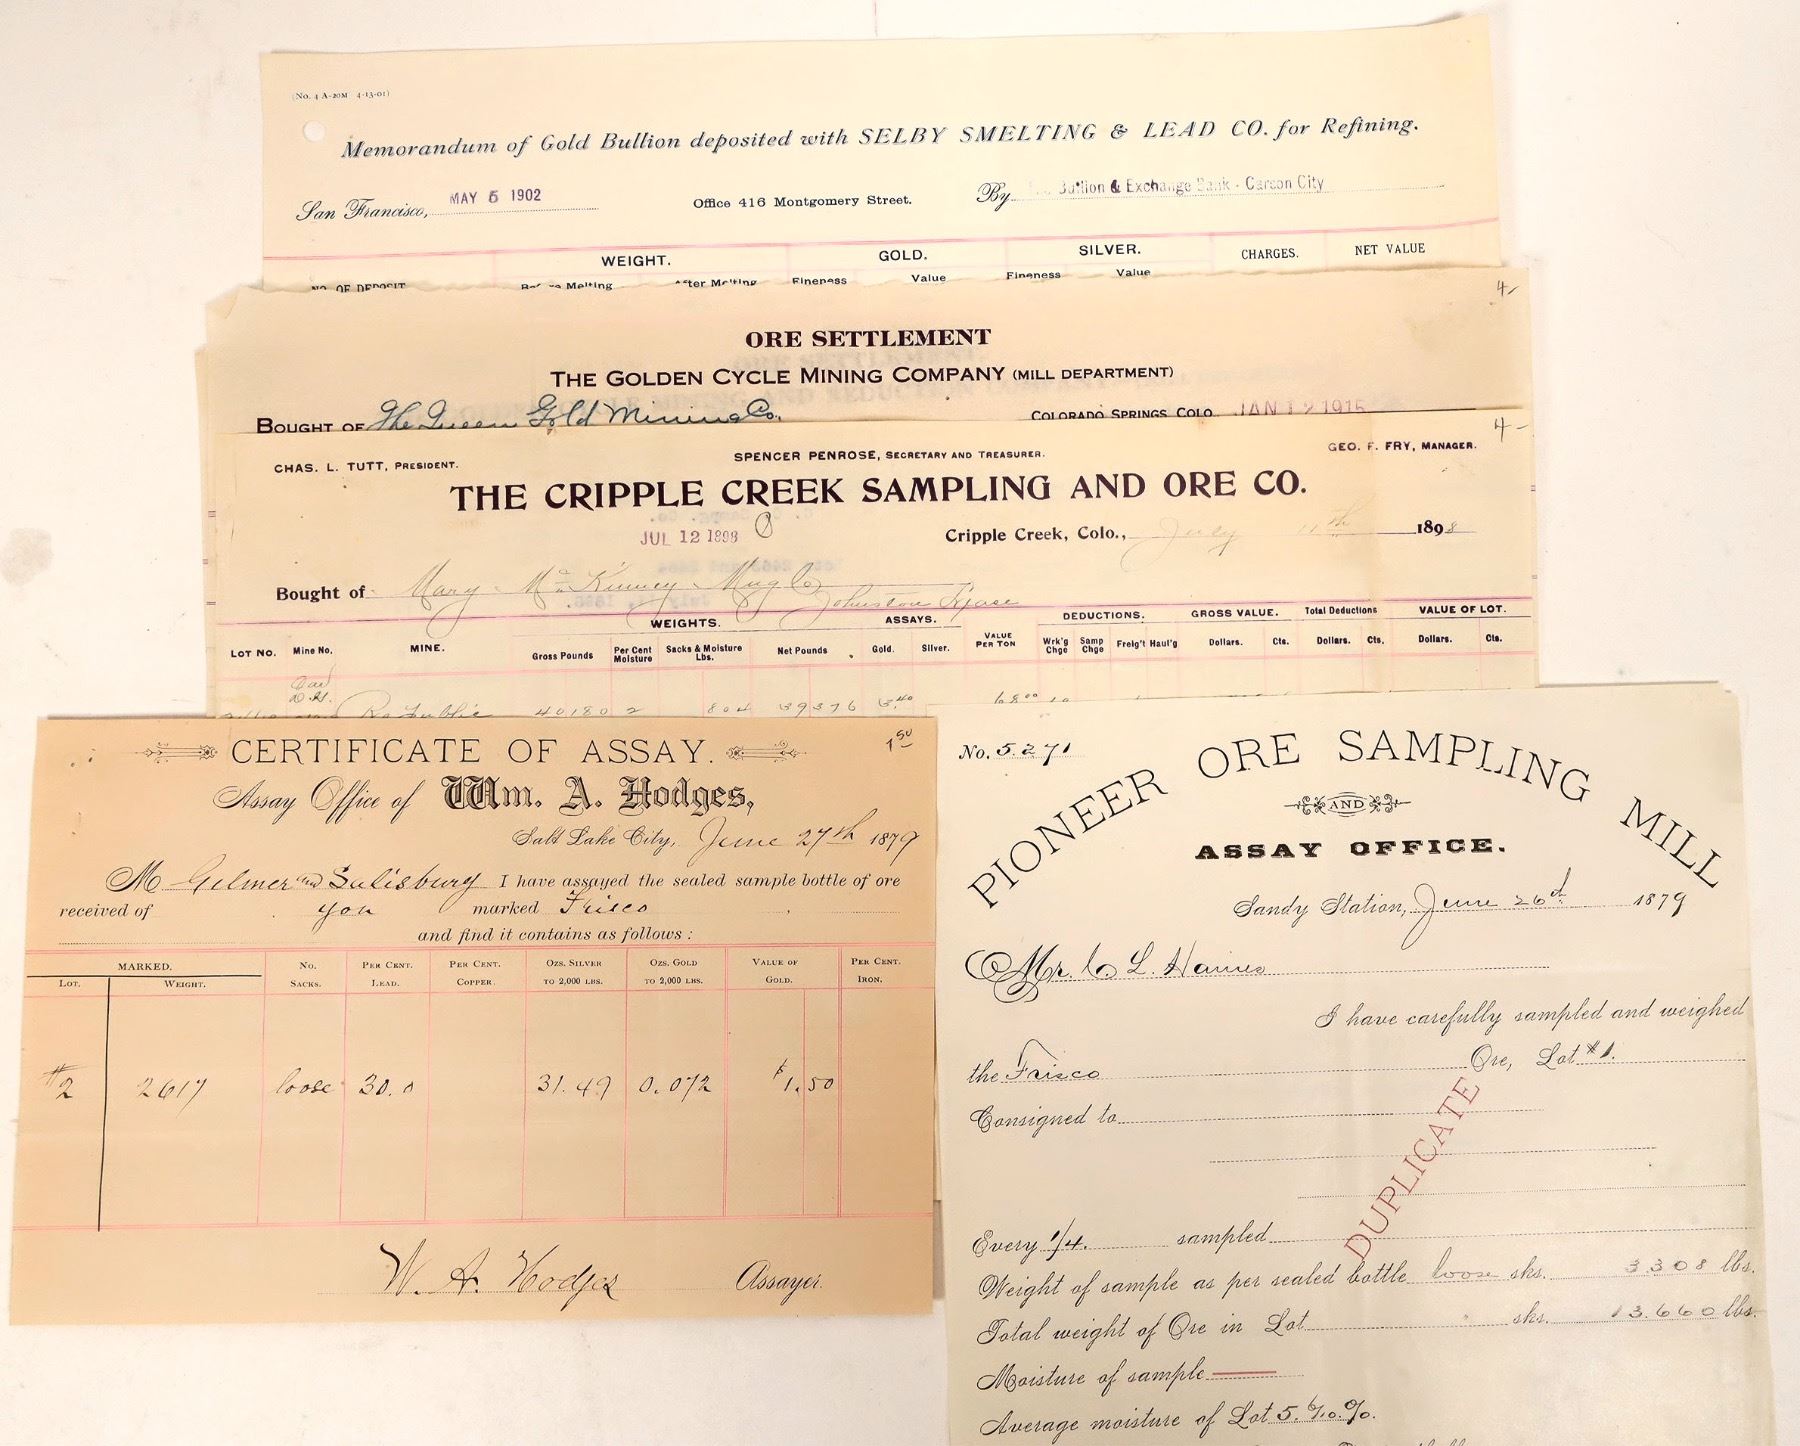 (No. 4 A-20M 4-13-01)
Memorandum of Gold Bullion deposited with SELBY SMELTING & LEAD CO. for Refining.
San Francisco, MAY 5 1902 Office 416 Montgomery Street. By Bullion & Exchange Bank - Carson City
WEIGHT. GOLD. SILVER. CHARGES. NET VALUE
NO. OF DEPOSIT Before Melting After Melting Fineness Value Fineness Value
4-
ORE SETTLEMENT
THE GOLDEN CYCLE MINING COMPANY (MILL DEPARTMENT)
BOUGHT OF The Queen Gold Mining Co. COLORADO SPRINGS, COLO. JAN 12 1915
4-
CHAS. L. TUTT, PRESIDENT. SPENCER PENROSE, SECRETARY AND TREASURER. GEO. F. FRY, MANAGER.
THE CRIPPLE CREEK SAMPLING AND ORE CO.
JUL 12 1898 Cripple Creek, Colo., July 11th 1898
Bought of Mary McKinney Mng Co Johnston Lease
WEIGHTS. ASSAYS. VALUE PER TON DEDUCTIONS. GROSS VALUE. Total Deductions VALUE OF LOT.
LOT NO. Mine No. MINE. Gross Pounds Per Cent Moisture Sacks & Moisture Lbs. Net Pounds Gold. Silver. Wrk'g Chge Samp Chge Freig't Haul'g Dollars. Cts. Dollars. Cts. Dollars. Cts.
Car
Republic 40180 2 804 39376 3.40 68.00
CERTIFICATE OF ASSAY. 1.50
Assay Office of Wm. A. Hodges,
Salt Lake City, June 27th 1879
M Gilmer and Salisbury I have assayed the sealed sample bottle of ore
received of you marked Frisco
and find it contains as follows:
MARKED. No. PER CENT. PER CENT. OZS. SILVER OZS. GOLD VALUE OF PER CENT.
LOT. WEIGHT. SACKS. LEAD. COPPER. TO 2,000 LBS. TO 2,000 LBS. GOLD. IRON.
#2 2617 loose 30.0 31.49 0.072 $1.50
W. A. Hodges Assayer.
No. 5271
PIONEER ORE SAMPLING MILL
AND
ASSAY OFFICE.
Sandy Station, June 26th 1879
Mr. C. L. Haines
I have carefully sampled and weighed
the Frisco Ore, Lot #1.
Consigned to
DUPLICATE
Every 1/4. sampled
Weight of sample as per sealed bottle loose sks. 3308 lbs.
Total weight of Ore in Lot sks. 13.660 lbs.
Moisture of sample
Average moisture of Lot